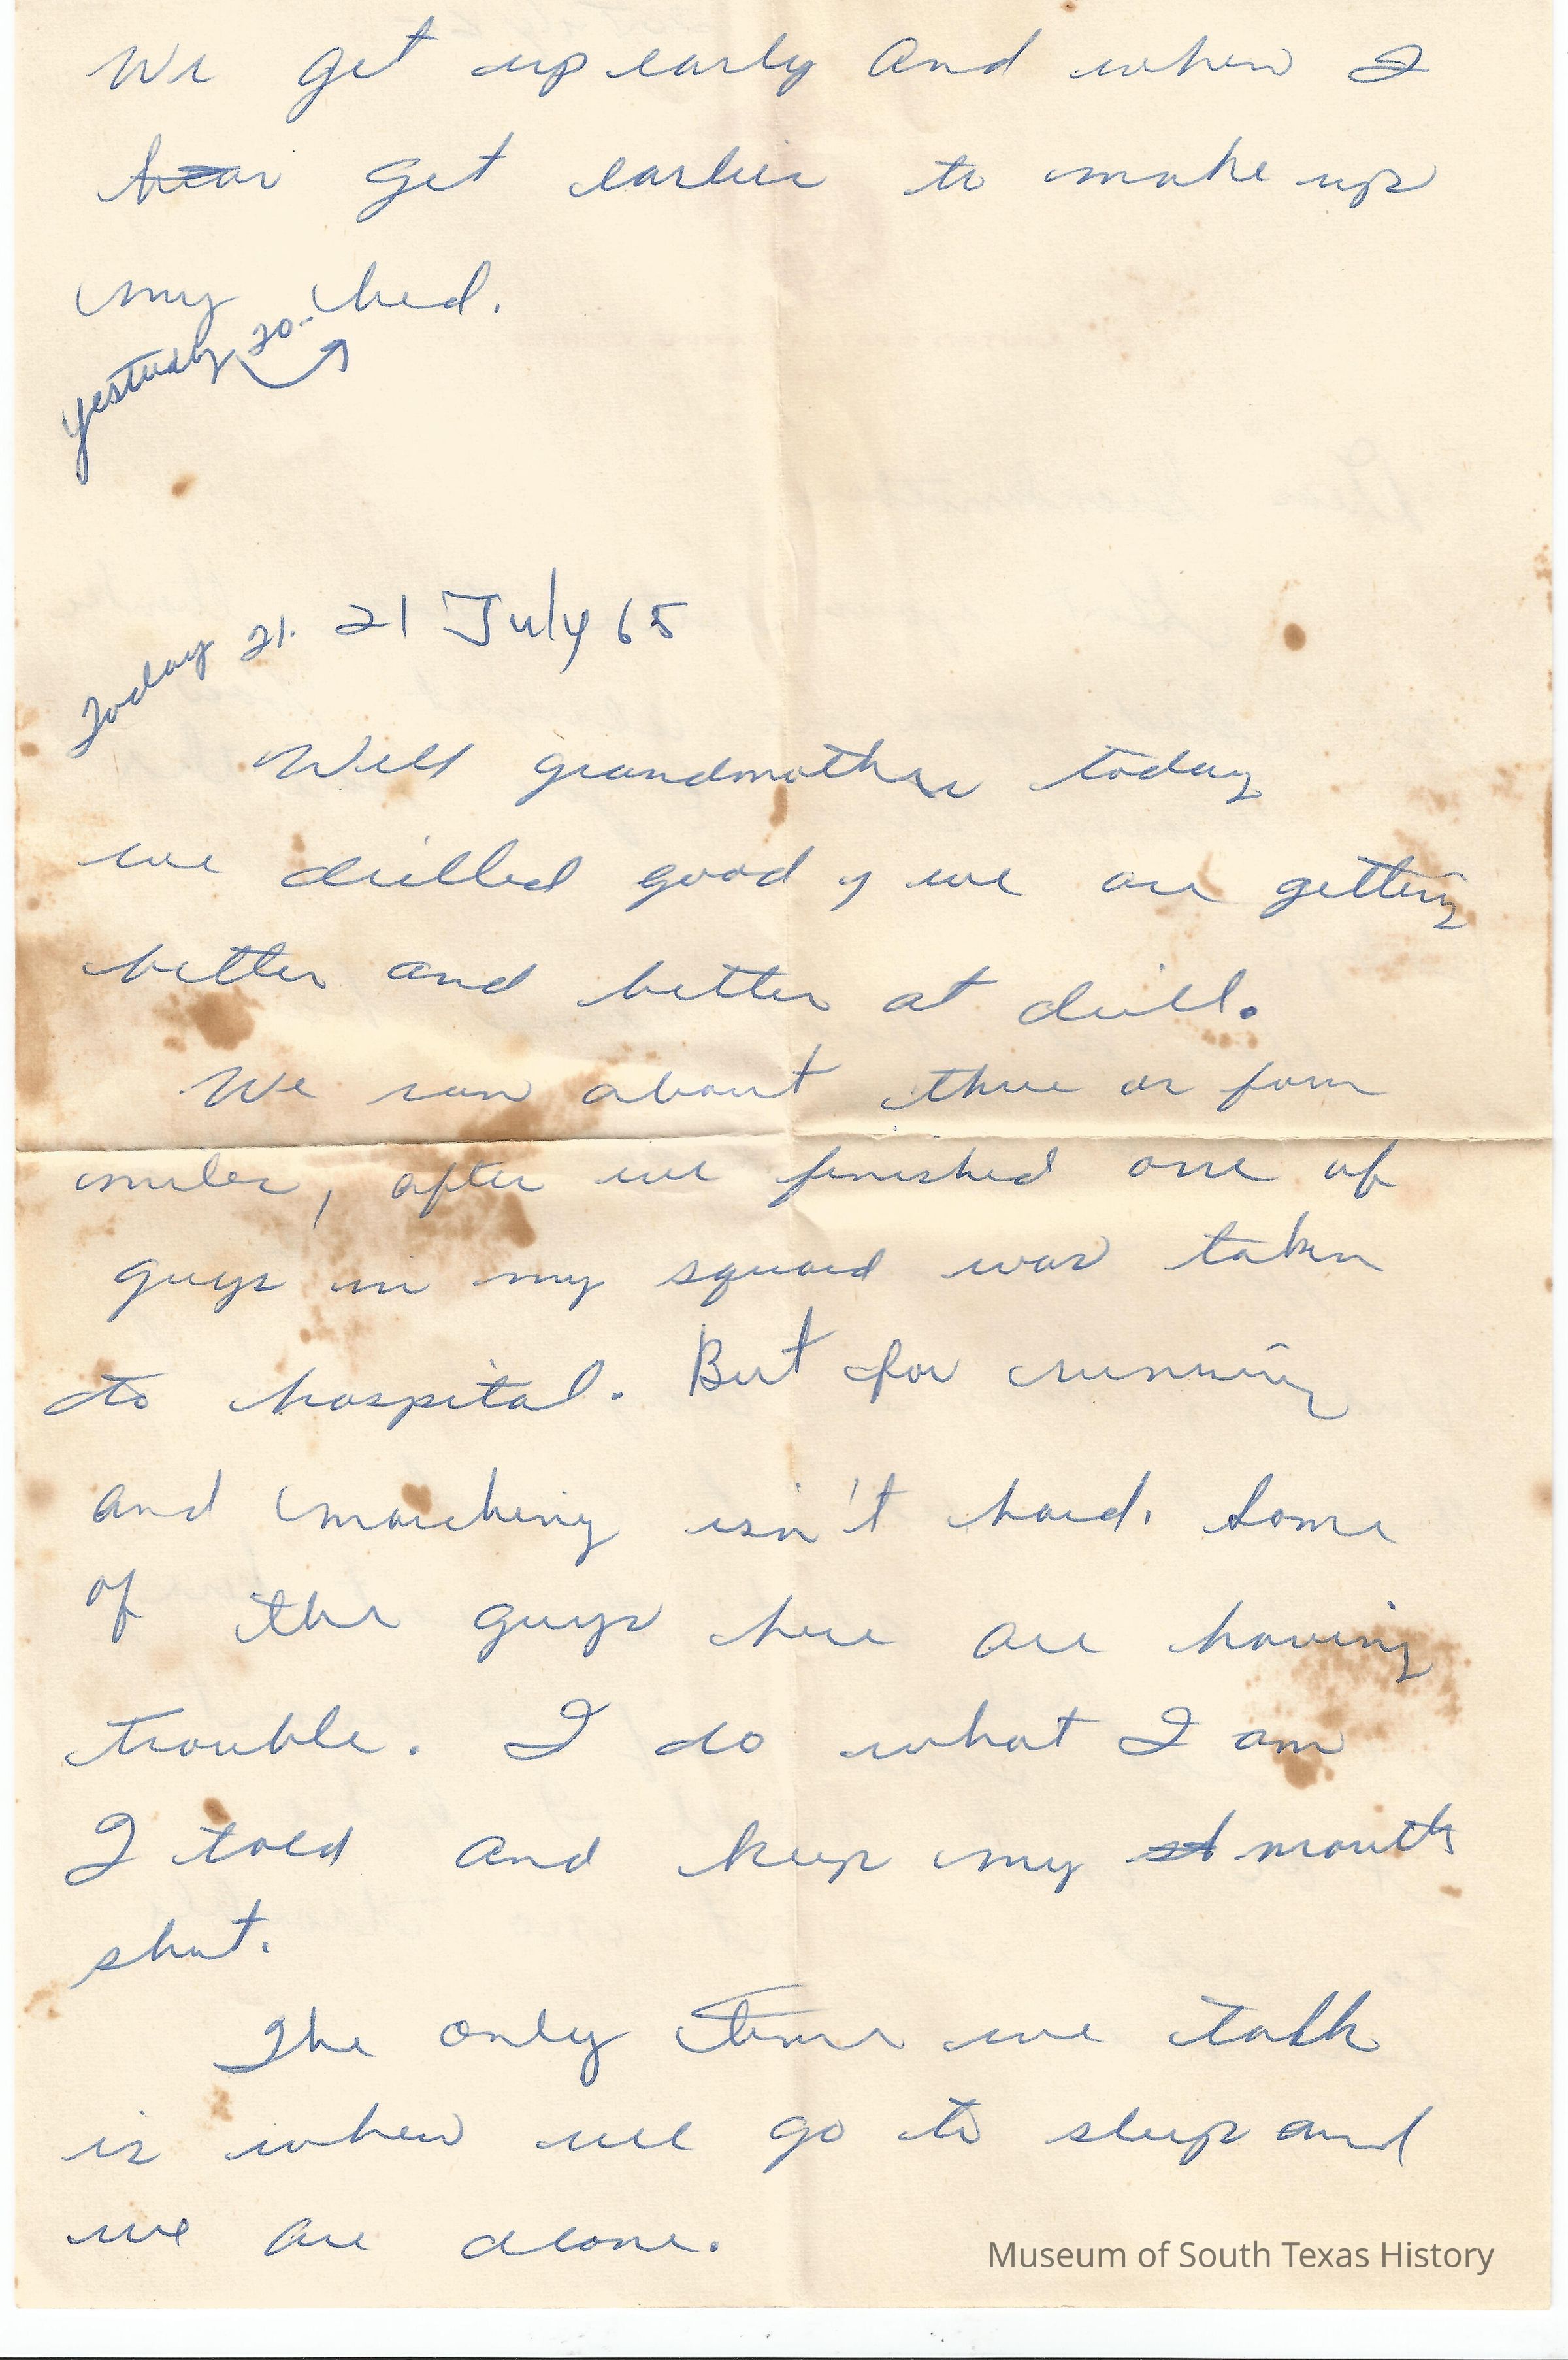 We get up early and when I
hear get earlier to make up
my bed.
yesterday 20.
Today 21. 21 July 65
Well grandmother today
we drilled good, we are getting
better and better at drill.
We run about three or four
miles, after we finished one of
guys in my squad was taken
to hospital. But for running
and marching isn't hard. Some
of the guys here are having
trouble. I do what I am
I told and keep my st mouth
shut.
The only time we talk
is when we go to sleep and
we are alone.
Museum of South Texas History